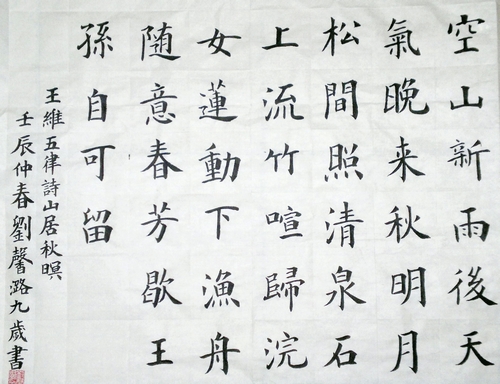 空山新雨後天
氣晚来秋明月
松間照清泉石
上流竹喧歸浣
女蓮動下漁舟
随意春芳歇王
孫自可留
王維五律詩山居秋暝
壬辰仲春劉馨潞九歲書